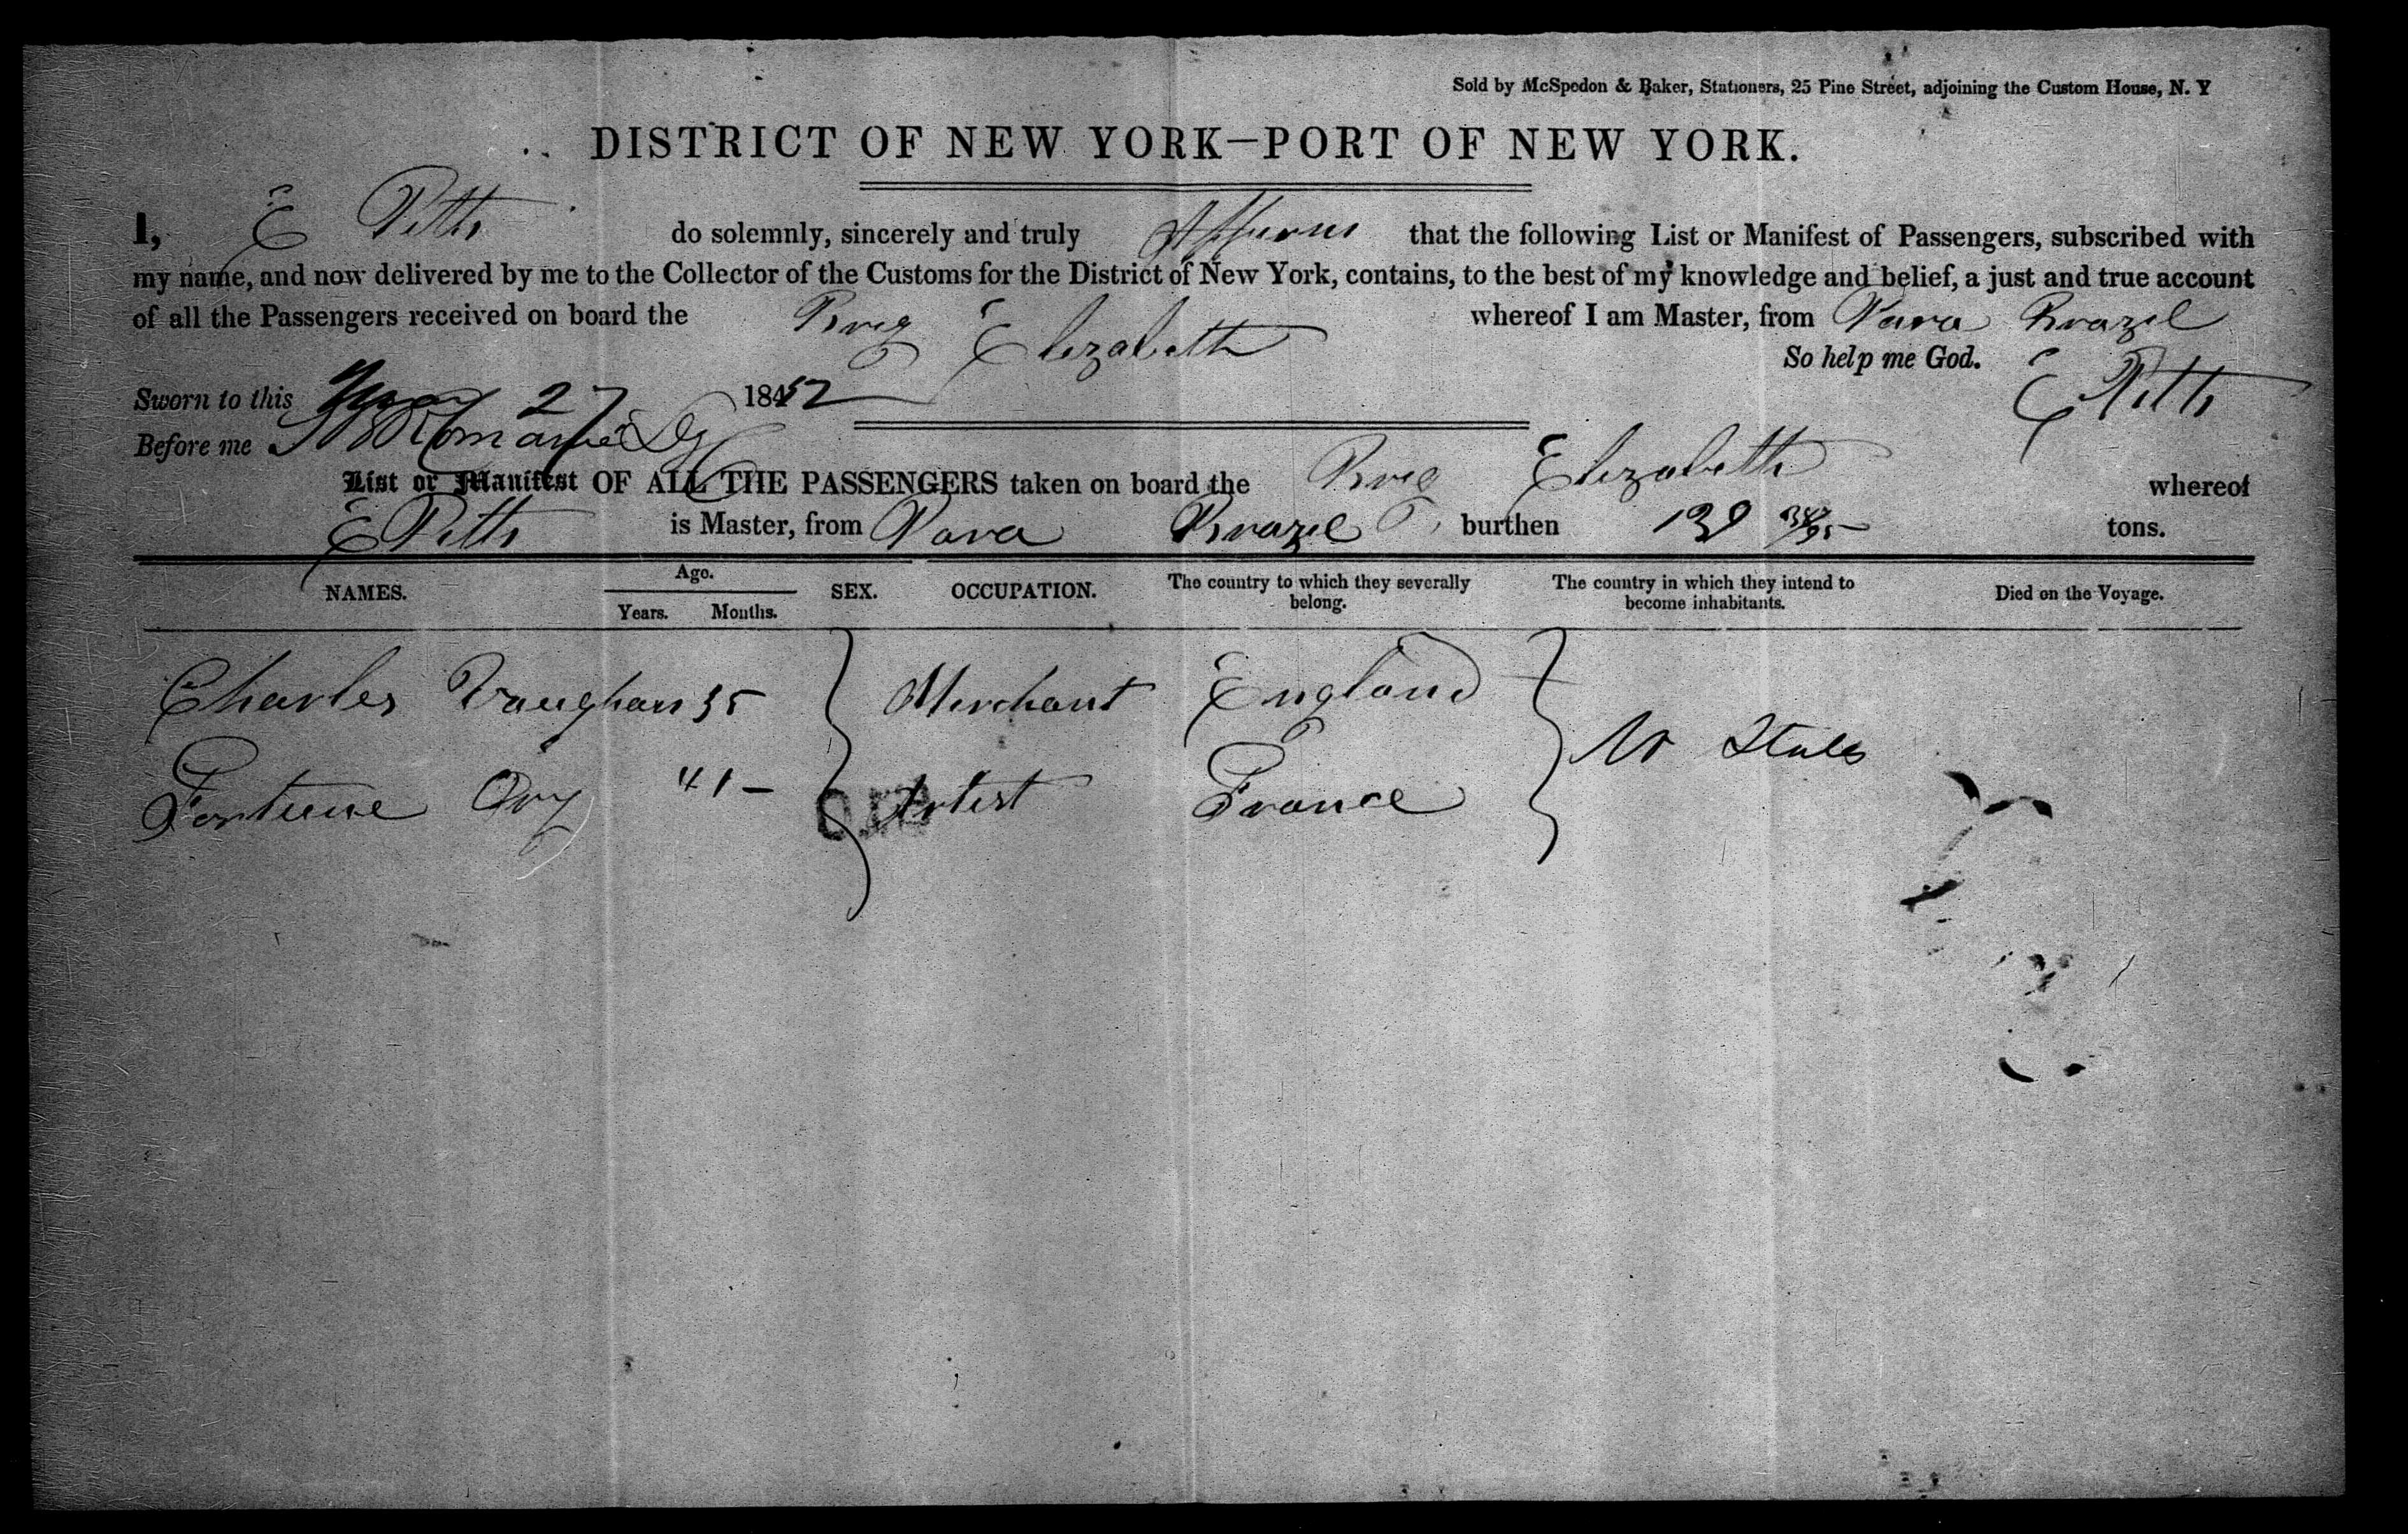 Sold by McSpedon & Baker, Stationers, 25 Pine Street, adjoining the Custom House, N. Y
DISTRICT OF NEW YORK—PORT OF NEW YORK.
I, E Pitts do solemnly, sincerely and truly that the following List or Manifest of Passengers, subscribed with
my name, and now delivered by me to the Collector of the Customs for the District of New York, contains, to the best of my knowledge and belief, a just and true account
of all the Passengers received on board the Brig Elizabeth whereof I am Master, from Para Brazil
So help me God. E Pitts
Sworn to this 27 1852
Before me
List or Manifest OF ALL THE PASSENGERS taken on board the Brig Elizabeth whereof
E Pitts is Master, from Para Brazil burthen 139 tons.
NAMES. Age. SEX. OCCUPATION. The country to which they severally belong. The country in which they intend to become inhabitants. Died on the Voyage.
Years. Months.
Charles Vaughan 35 Merchant England
U States
Fortune Ory 41 – Artist France